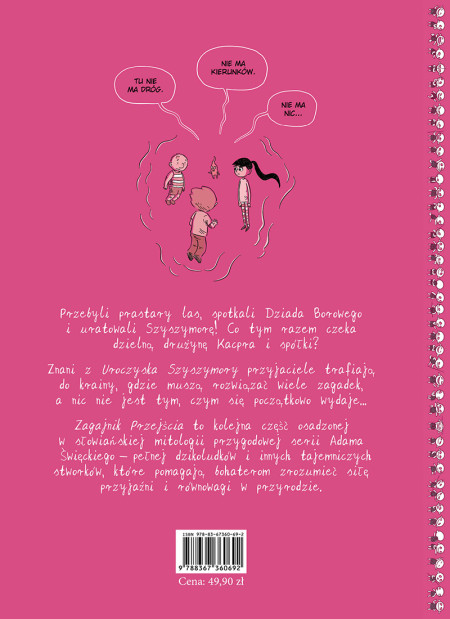 TU NIE
MA DRÓG.
NIE MA
KIERUNKÓW.
NIE MA
NIC...
Przebyli prastary las, spotkali Dziada Borowego
i uratowali Szyszymorę! Co tym razem czeka
dzielną drużynę Kacpra i spółki?
Znani z Uroczyska Szyszymory przyjaciele trafiają
do krainy, gdzie muszą rozwiązać wiele zagadek,
a nic nie jest tym, czym się początkowo wydaje...
Zagajnik Przejścia to kolejna część osadzonej
w słowiańskiej mitologii przygodowej serii Adama
Święckiego – pełnej dzikoludków i innych tajemniczych
stworków, które pomagają bohaterom zrozumieć siłę
przyjaźni i równowagi w przyrodzie.
ISBN 978-83-67360-69-2
9 788367 360692
Cena: 49,90 zł